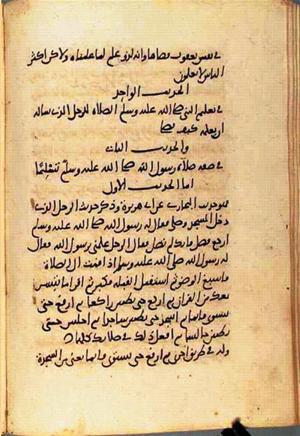 في نفس يعقوب قضاها وانه لذو علم لما علمناه ولاكن اكثر
الناس لا يعلمون
الحديث الواحد
في تعليم النبي صلى الله عليه وسلم الصلاة للرجل الذي ساله
ان يعلمه كيف يصلي
والحديث الثاني
في صفه صلاة رسول الله صلى الله عليه وسلم تسليما
اما الحديث الاول
فهو حديث البخاري عن ابي هريرة وذكر حديث الرجل الذي
دخل المسجد وصلى فقال له رسول الله صلى الله عليه وسلم
ارجع فصل فانك لم تصل فقال الرجل علمني يرسول الله فقال
له رسول الله صلى الله عليه وسلم اذا قمت الى الصلاة
فاسبغ الوضوء ثم استقبل القبلة فكبر ثم اقرا ما تيسر
معك من القران ثم اركع حتى تطمئن راكعا ثم ارفع حتى
تستوي قائما ثم اسجد حتى تطمئن ساجدا ثم اجلس حتى
تطمئن جالسا ثم افعل ذلك في صلاتك كلها
وله في طريق اخرى ثم ارفع حتى تستوي قائما يعني من السجدة